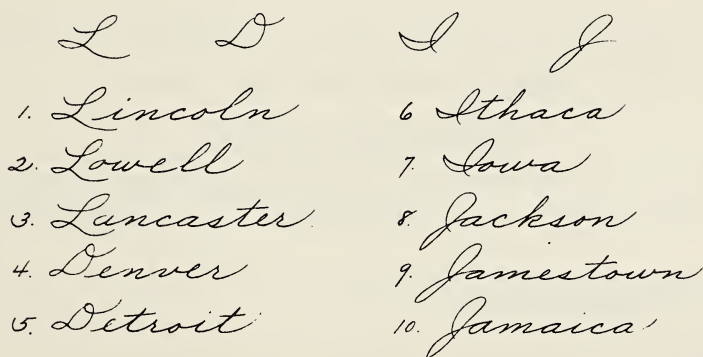 L D I J
1. Lincoln
2. Lowell
3. Lancaster
4. Denver
5. Detroit
6 Ithaca
7. Iowa
8. Jackson
9. Jamestown
10. Jamaica